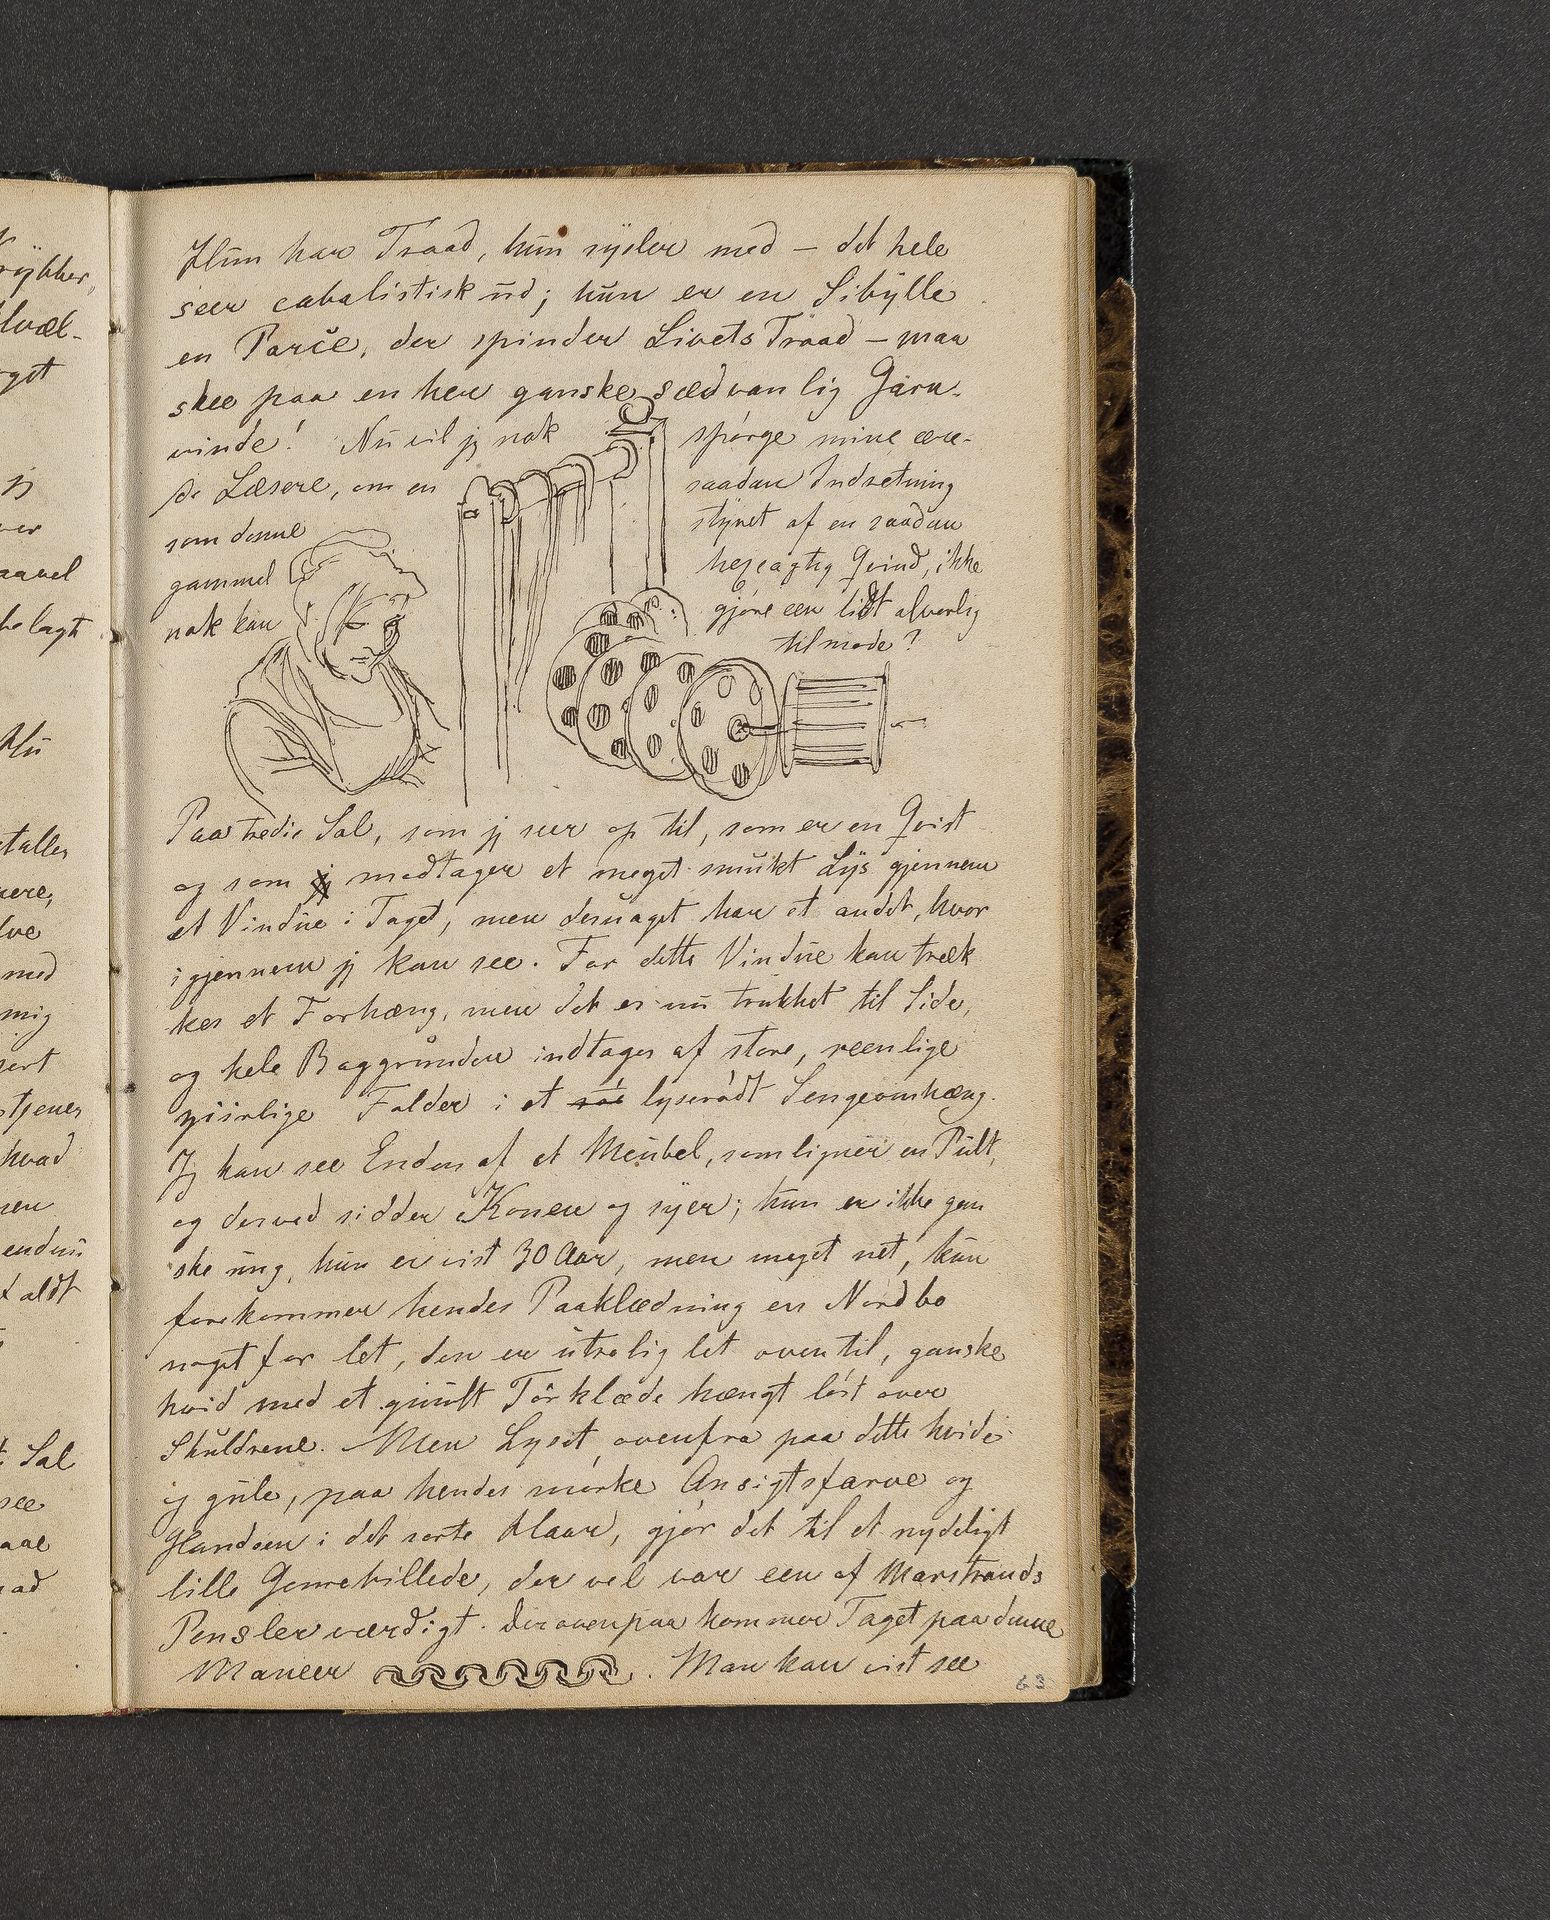 rykker,
jeg
mig
hvad
endnu
aldt
Sal
see
Hun har Traad, hun sysler med – det hele
seer cabalistisk ud; hun er en Sibylle
en Parce, der spinder Livets Traad – maa
skee paa en her ganske sædvanlig Garn-
vinde! Nu vil jeg nok spørge mine ære-
de Læsere, om en saadan Indretning
som denne styret af en saadan
gammel hexeagtig Qvind, ikke
nok kan gjøre een lidt alvorlig
tilmode?
Paa tredie Sal, som jeg seer op til, som er en Qvist
og som jeg modtager et meget smukt Lys gjennem
et Vindue i Taget, men desuagt har et andet, hvor
igjennem jeg kan see. For dette Vindue kan træk
kes et Forhæng, men det er nu trukket til Side,
og hele Baggrunden indtages af store, reenlige
ziirlige Folder i et lyserødt Sengeomhæng.
Jeg kan see Enden af et Meubel, som ligner en Pult,
og derved sidder Konen og syer; hun er ikke gan
ske ung, hun er vist 30 Aar, men meget net, kun
forekommer hendes Paaklædning en Nordbo
noget for let, den er utrolig let oventil, ganske
hvid med et guult Tørklæde hængt løst over
Skuldrene. Men Lyset ovenfra paa dette hvide
og gule, paa hendes mørke Ansigtsfarve og
Glandsen i det sorte Haar, gjør det til et nydeligt
lille Genrebillede, der vel var een af Marstrands
Pensler værdigt. Der ovenpaa kommer Taget paa denne
Maneer . Man kan vist see
63